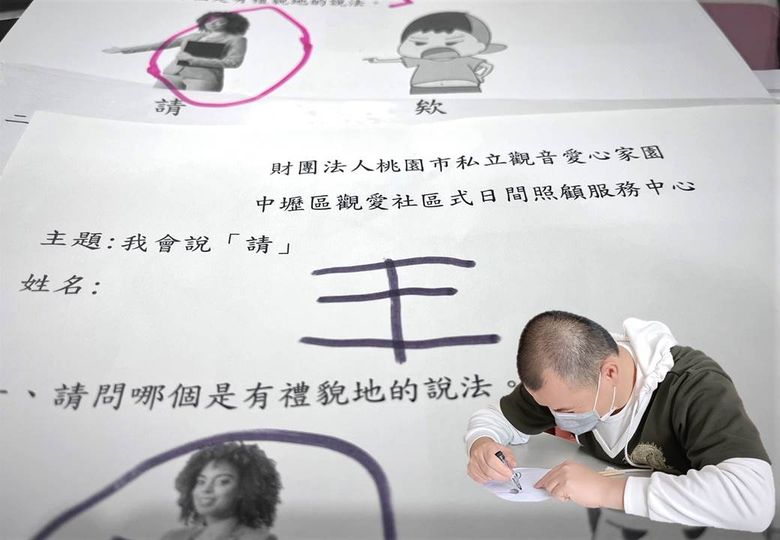 是有禮貌地的說法。
請
欸
二
財團法人桃園市私立觀音愛心家園
中壢區觀愛社區式日間照顧服務中心
主題:我會說「請」
姓名:
王
、請問哪個是有禮貌地的說法。